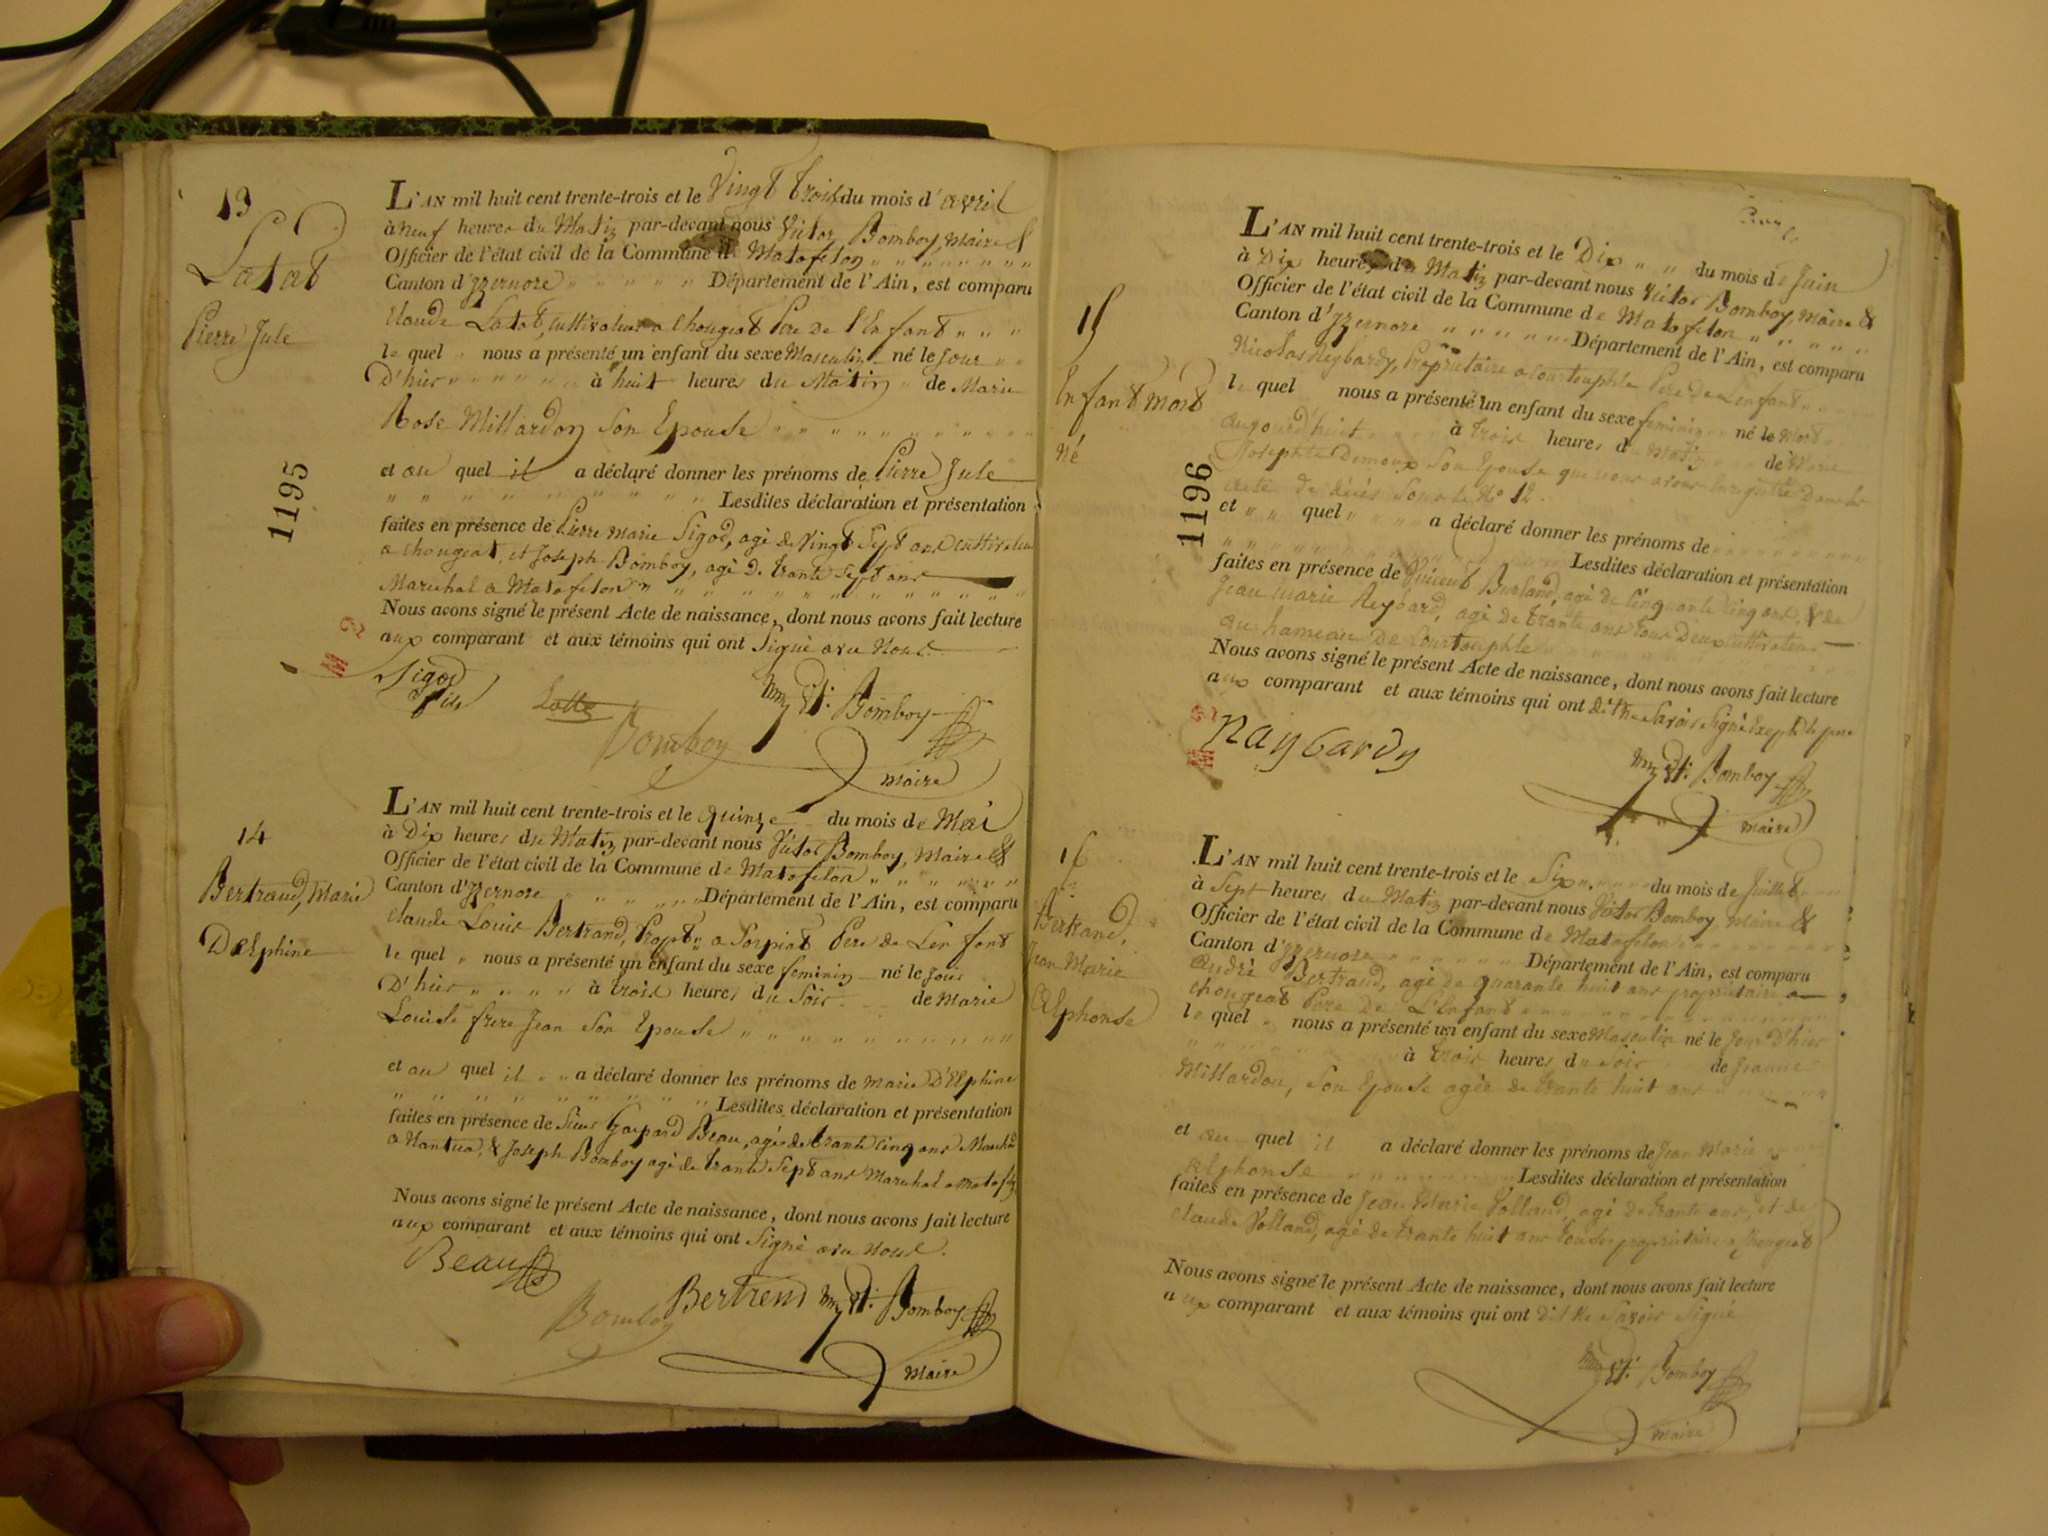 13
Latat
Pierre Jule
1195
L'AN mil huit cent trente-trois et le Vingt trois du mois d'avril
à neuf heures du Matin par-devant nous Victor Bomboy, Maire &
Officier de l'état civil de la Commune de Matafelon
Canton d'Yzernore Département de l'Ain, est comparu
Claude Latat, Cultivateur a Chougeat Pere de l'Enfant
le quel nous a présenté un enfant du sexe Masculin né le Jour
D'hier à huit heures du Matin de Marie
Rose Millardon Son Epouse
et au quel il a déclaré donner les prénoms de Pierre Jule
Lesdites déclaration et présentation
faites en présence de Pierre Marie Sigod, agé de Vingt Sept ans Cultivateur
a Chougeat, et Joseph Bomboy, agé de trante Sept ans
Marechal a Matafelon
Nous avons signé le présent Acte de naissance, dont nous avons fait lecture
aux comparant et aux témoins qui ont Signé avec Nous.
Sigod
fils
Bomboy
Bomboy
Maire
14
Bertrand, Marie
Delphine
L'AN mil huit cent trente-trois et le quinze du mois de Mai
à Dix heures du Matin par-devant nous Victor Bomboy, Maire &
Officier de l'état civil de la Commune de Matafelon
Canton d'Yzernore Département de l'Ain, est comparu
Claude Louis Bertrand, Propre a Corpiat Pere de L'enfant
le quel nous a présenté un enfant du sexe feminin né le Jour
D'hier à trois heures du Soir de Marie
Louise frere Jean Son Epouse
et au quel il a déclaré donner les prénoms de Marie D'Elphine
Lesdites déclaration et présentation
faites en présence de Sieur Gaspard Beau, agé de trante Cinq ans Marchd
a Nantua, & Joseph Bomboy agé de trante Sept ans Marechal a Matafon
Nous avons signé le présent Acte de naissance, dont nous avons fait lecture
aux comparant et aux témoins qui ont Signé avec Nous.
Beau
Bomboy Bertrend Bomboy
Maire
15
Enfant Mort
Né
1196
L'AN mil huit cent trente-trois et le Dix du mois de Juin
à Dix heures du Matin par-devant nous Victor Bomboy, Maire &
Officier de l'état civil de la Commune de Matafelon
Canton d'Yzernore Département de l'Ain, est comparu
Nicolas Reybardy, Propriétaire a Courtouphle Pere de L'enfant
le quel nous a présenté un enfant du sexe feminin né le Mort
aujourd'huit à trois heures du Matin de Marie
Josephte Demoux Son Epouse que nous avons enregistré Dans les
acte de décès Sous le No 12.
et quel a déclaré donner les prénoms de
Lesdites déclaration et présentation
faites en présence de Vincent Burland, agé de Cinquante Cinq ans, & de
Jean Marie Reybard, agé de trante ans tous Deux Cultivateur
au hameau De Courtouphle
Nous avons signé le présent Acte de naissance, dont nous avons fait lecture
aux comparant et aux témoins qui ont dit Ne Savoir Signé Excepté le pere
Raybardy
Bomboy
Maire
16
Bertrand,
Jean Marie
Alphonse
L'AN mil huit cent trente-trois et le Six du mois de Juillet
à Sept heures du Matin par-devant nous Victor Bomboy Maire &
Officier de l'état civil de la Commune de Matafelon
Canton d'Yzernore Département de l'Ain, est comparu
André Bertrand, agé de quarante huit ans propriétaire a
Chougeat Pere De L'Enfant
le quel nous a présenté un enfant du sexe Masculin né le Jour D'hier
à trois heures du Soir de Jeanne
Millardon, Son Epouse agée de trante huit ans
et au quel il a déclaré donner les prénoms de Jean Marie
Alphonse Lesdites déclaration et présentation
faites en présence de Jean Marie Volland, agé de trante ans, et de
Claude Volland, agé de trante huit ans tous propriétaire a Chougeat
Nous avons signé le présent Acte de naissance, dont nous avons fait lecture
aux comparant et aux témoins qui ont Dit Ne Savoir Signé
Bomboy
Maire